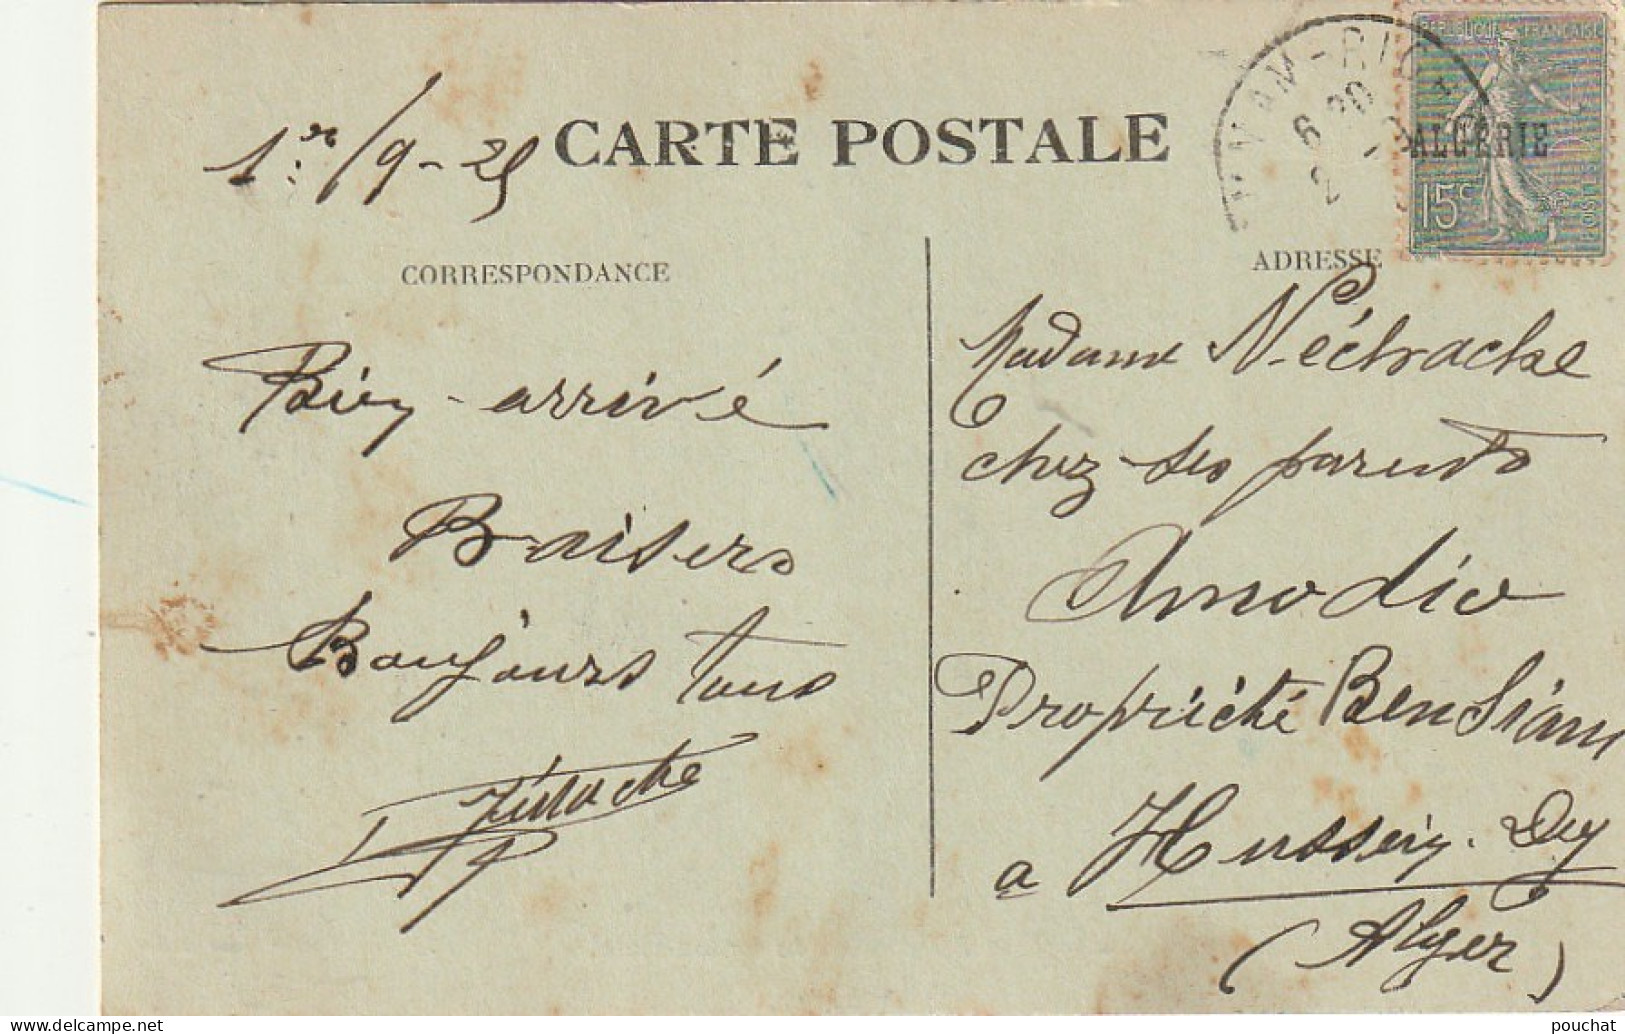 1er/9-25
CARTE POSTALE
HAMMAM-RI
6 20
2
REPUBLIQUE FRANCAISE
ALGERIE
15c
POSTES
CORRESPONDANCE
ADRESSE
Bien arrivé
Baisers
Boujours tous
Madame Néchrache
chez ses parents
Amodio
Propriété Ben Siam
a Hussein-Dey
(Alger)
pouchat
www.delcampe.net